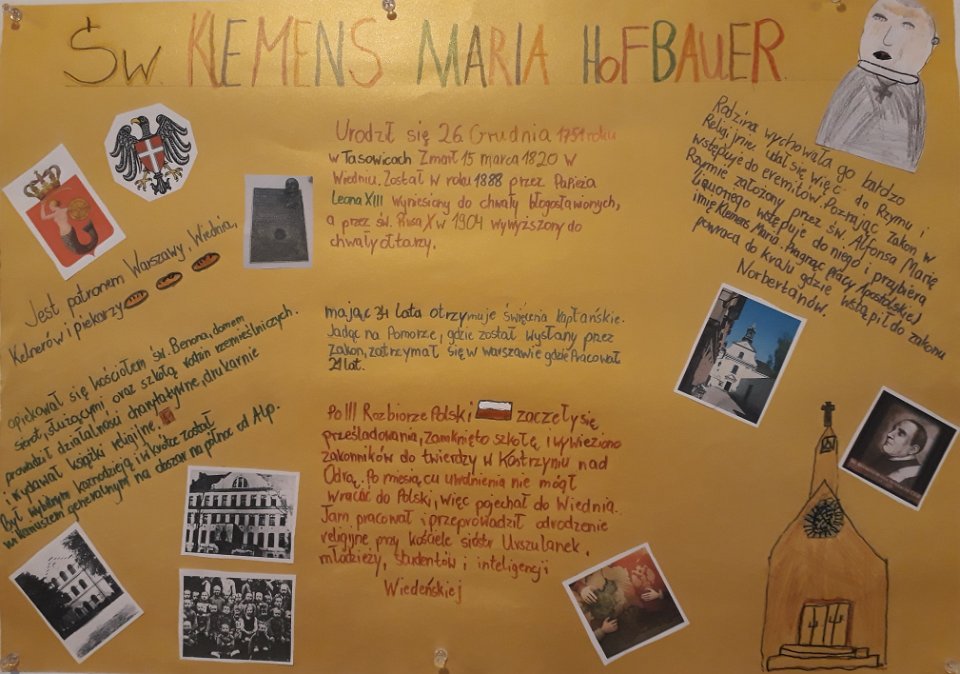 ŚW. KLEMENS MARIA HOFBAUER.
Urodził się 26 Grudnia 1751 roku
w Tasowicach Zmarł 15 marca 1820 w
Wiedniu. Został w roku 1888 przez Papieża
Leona XIII wyniesiony do chwały błogosławionych,
a przez św. Piusa X w 1904 wywyższony do
chwały ołtarzy.
Rodzina wychowała go bardzo
Religijnie. Udał się więc do Rzymu i
wstępuje do eremitów. Poznając zakon, w
Rzymie założony przez św. Alfonsa Marię
Liguoriego wstępuje do niego i przybiera
imię Klemens Maria. Pragnąc pracy Apostolskiej
powraca do kraju gdzie wstąpił do zakonu
Norbertanów.
Jest patronem Warszawy, Wiednia,
Kelnerów i piekarzy
mając 34 lata otrzymuje święcenia Kapłańskie.
Jadąc na Pomorze, gdzie został wysłany przez
zakon, zatrzymał się w warszawie gdzie Pracował
21 lat.
opiekował się kościołem św. Benona, domem
sierot, służącymi oraz szkołą rodzin rzemieślniczych.
prowadził działalność charytatywne, drukarnie
i wydawał książki religijne.
Był wybitnym kaznodzieją i wkrótce został
wikariuszem generalnym na obszar na północ od Alp.
Po III Rozbiorze Polski zaczęły się
prześladowania, zamknięto szkołę i wywieziono
zakonników do twierdzy w Kostrzyniu nad
Odrą. Po miesiącu uwolnienia nie mógł
wracać do Polski, więc pojechał do Wiednia.
Tam pracował i przeprowadził odrodzenie
religijne przy kościele sióstr Urszulanek,
młodzieży, studentów i inteligencji
Wiedeńskiej